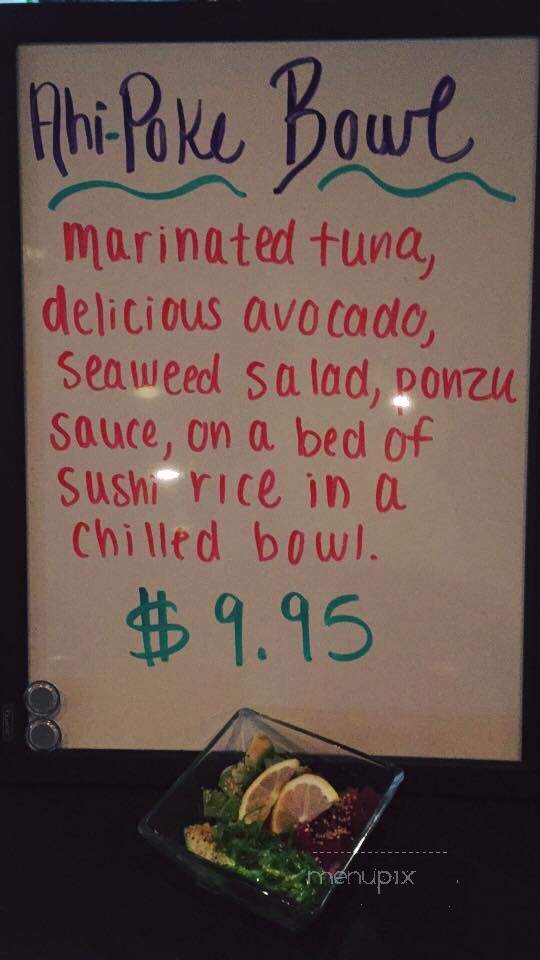 Ahi-Poke Bowl
marinated tuna,
delicious avocado,
seaweed salad, ponzu
sauce, on a bed of
sushi rice in a
chilled bowl.
$9.95
menupix